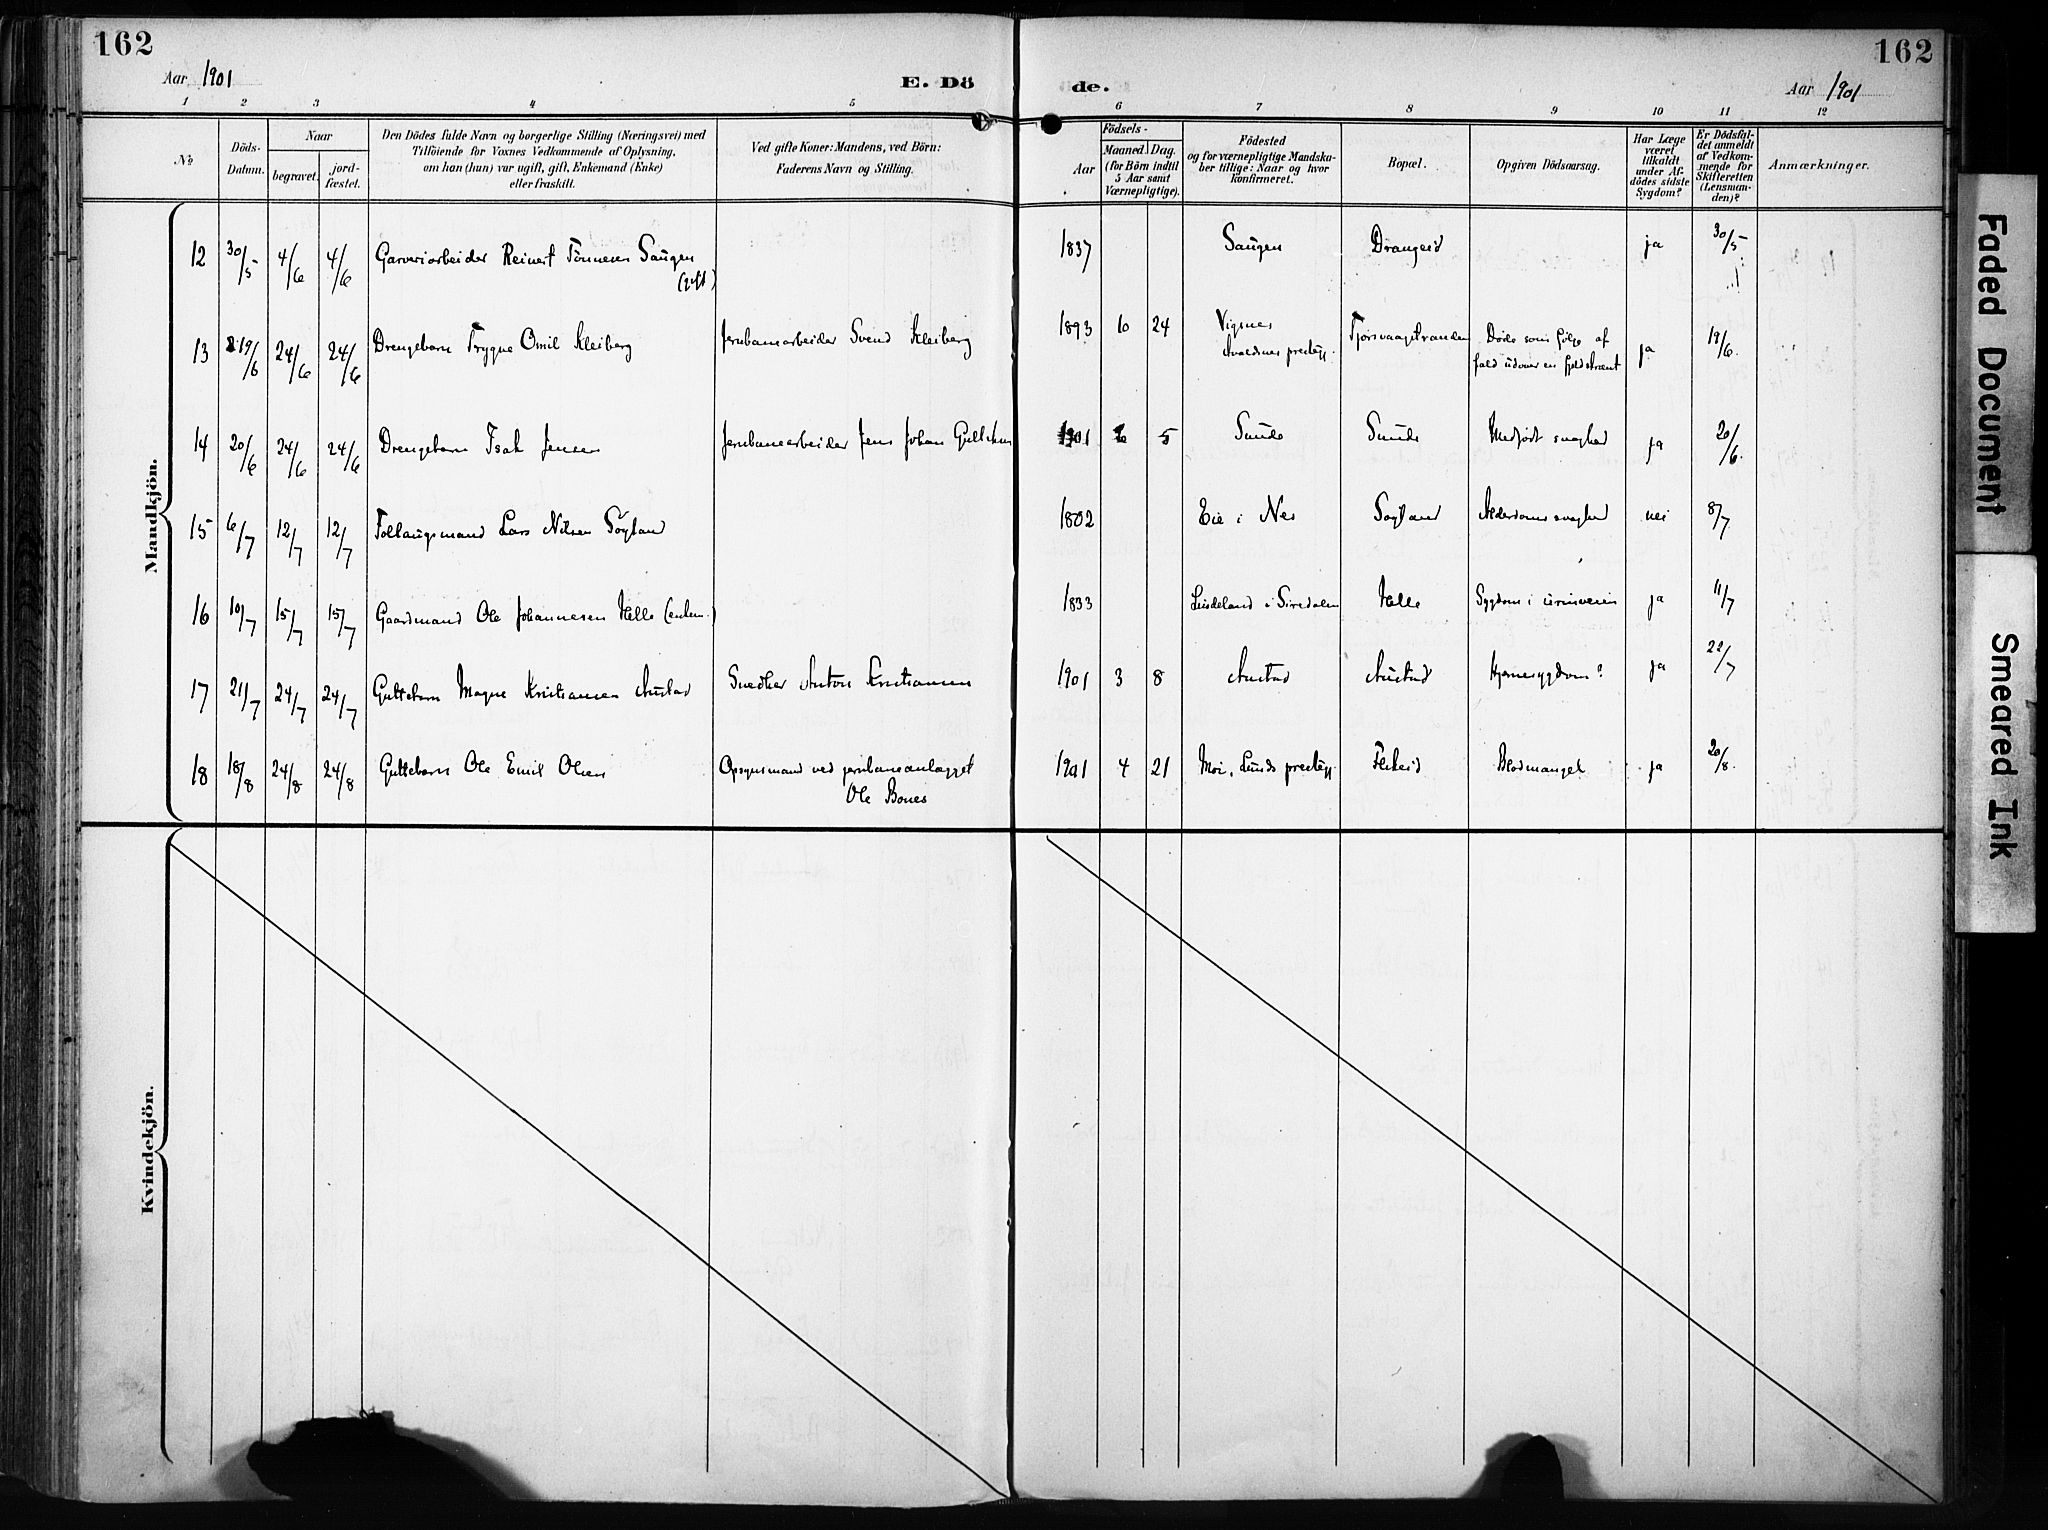 162
162
Aar 1901
E. Dö
de.
Aar 1901
1 2 3 4 5 6 7 8 9 10 11 12
№
Döds-
Datum.
Naar
begravet.
jord-
fæstet.
Den Dödes fulde Navn og borgerlige Stilling (Næringsvei) med
Tilföiende for Voxnes Vedkommende af Oplysning,
om han (hun) var ugift, gift, Enkemand (Enke)
eller fraskilt.
Ved gifte Koner: Mandens, ved Börn:
Faderens Navn og Stilling.
Födsels-
Aar
Maaned. Dag.
(for Börn indtil
5 Aar samt
Værnepligtige).
Födested
og for værnepligtige Mandska-
ber tillige: Naar og hvor
konfirmeret.
Bopæl.
Opgiven Dödsaarsag.
Har Læge
været
tilkaldt
under Af-
dödes sidste
Sygdom?
Er Dödsfal-
det anmeldt
af Vedkom-
mende for
Skifteretten
(Lensman-
den)?
Anmærkninger.
Mandkjön.
12 30/5 4/6 4/6 Garveriarbeider Reinert Tönnesen Saugen 1837 Saugen Drangeid ja 30/5
(gift)
13 19/6 24/6 24/6 Drengebarn Trygve Omil Kleiberg Jernbanearbeider Svend Kleiberg 1893 10 24 Vigsnes Fjörsvaagstranden Döde som følge af ja 19/6.
Avaldsnes prestegj. fald udover en fjeldskrænt
14 20/6 24/6 24/6 Drengebarn Isak Jensen Jernbanearbeider Jens Johan 1901 5 Sunde Sunde Medfødt svaghed ja 20/6.
15 6/7 12/7 12/7 Föllaugsmand Lars Nilsen Söyland 1802 Eie i Nes Söyland Alderdomssvaghed nei 8/7
16 10/7 15/7 15/7 Gaardmand Ole Johannesen Helle (enkem.) 1833 Lindeland i Siredalen Helle Sygdom i urinveien ja 11/7
17 21/7 24/7 24/7 Guttebarn Magne Kristiansen Austad Snedker Anton Kristiansen 1901 3 8 Austad Austad Hjernesygdom? ja 22/7
18 18/8 24/8 24/8 Guttebarn Ole Emil Olsen Opsynsmand ved jernbaneanlægget 1901 4 21 Moi, Lunds prestegj. Flikeid Blodmangel ja 20/8.
Ole Bones
Kvindekjön.
Faded Document
Smeared Ink